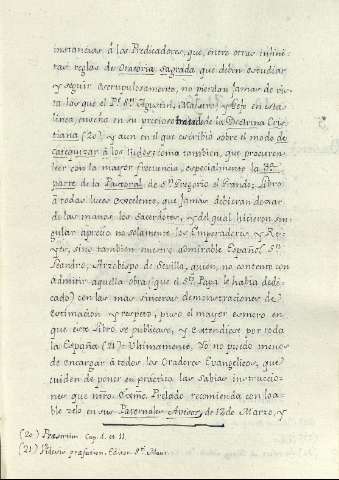 instancias á los Predicadores, que, entre otras infini-
tas reglas de Oratoria Sagrada que deben estudiar
y seguir escrupulosamente, no pierdan jamas de vis-
ta las que el P.e S.n Agustin, Maestro y Gefe en esta
linea, enseño en su precioso tratado de la Doctrina Cris-
tiana (20) y aun en el que escribió sobre el modo de
catequizar á los Rudes: como tambien, que procuren
leer con la mayor frecuencia, especialmente la 3.a
parte de la Pastoral de S.n Gregorio el Grande; Libro
á todas luces excelente, que jamas debieran dexar
de las manos los Sacerdotes, y del qual hicieron sin-
gular aprecio no solamente los Emperadores y Re-
yes, sino tambien nuestro admirable Español S.n
Leandro, Arzobispo de Sevilla, quien, no contento con
admitir aquella obra (que el S.to Papa le habia dedi-
cado) con las mas sinceras demonstraciones de
estimacion y respeto, puso el mayor esmero en
que este Libro se publicase, y extendiese por toda
la España (21). Ultimamente, Yo no puedo menos
de encargar á todos los Oradores Evangelicos, que
cuiden de poner en práctica las Sabias instruccio-
nes que ntro. Exmo. Prelado recomienda con loa-
ble zelo en sus Paternales Avisos, de 12 de Marzo, y
(20) Cap. 1. et 11.
(21) præfation. Editor. S.n Maur.